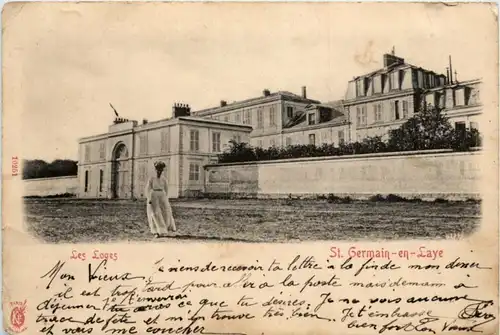 Les Loges
St. Germain-en-Laye
Mon Vieux
Je viens de recevoir ta lettre à la fin de mon dessert
il est trop tard pour aller à la poste mais demain à
déjeuner je t'enverrai
ce que tu désires. Je ne vois aucune
trace de fête et m'y trouve très bien. Je t'embrasse
et vais me coucher
bien fort